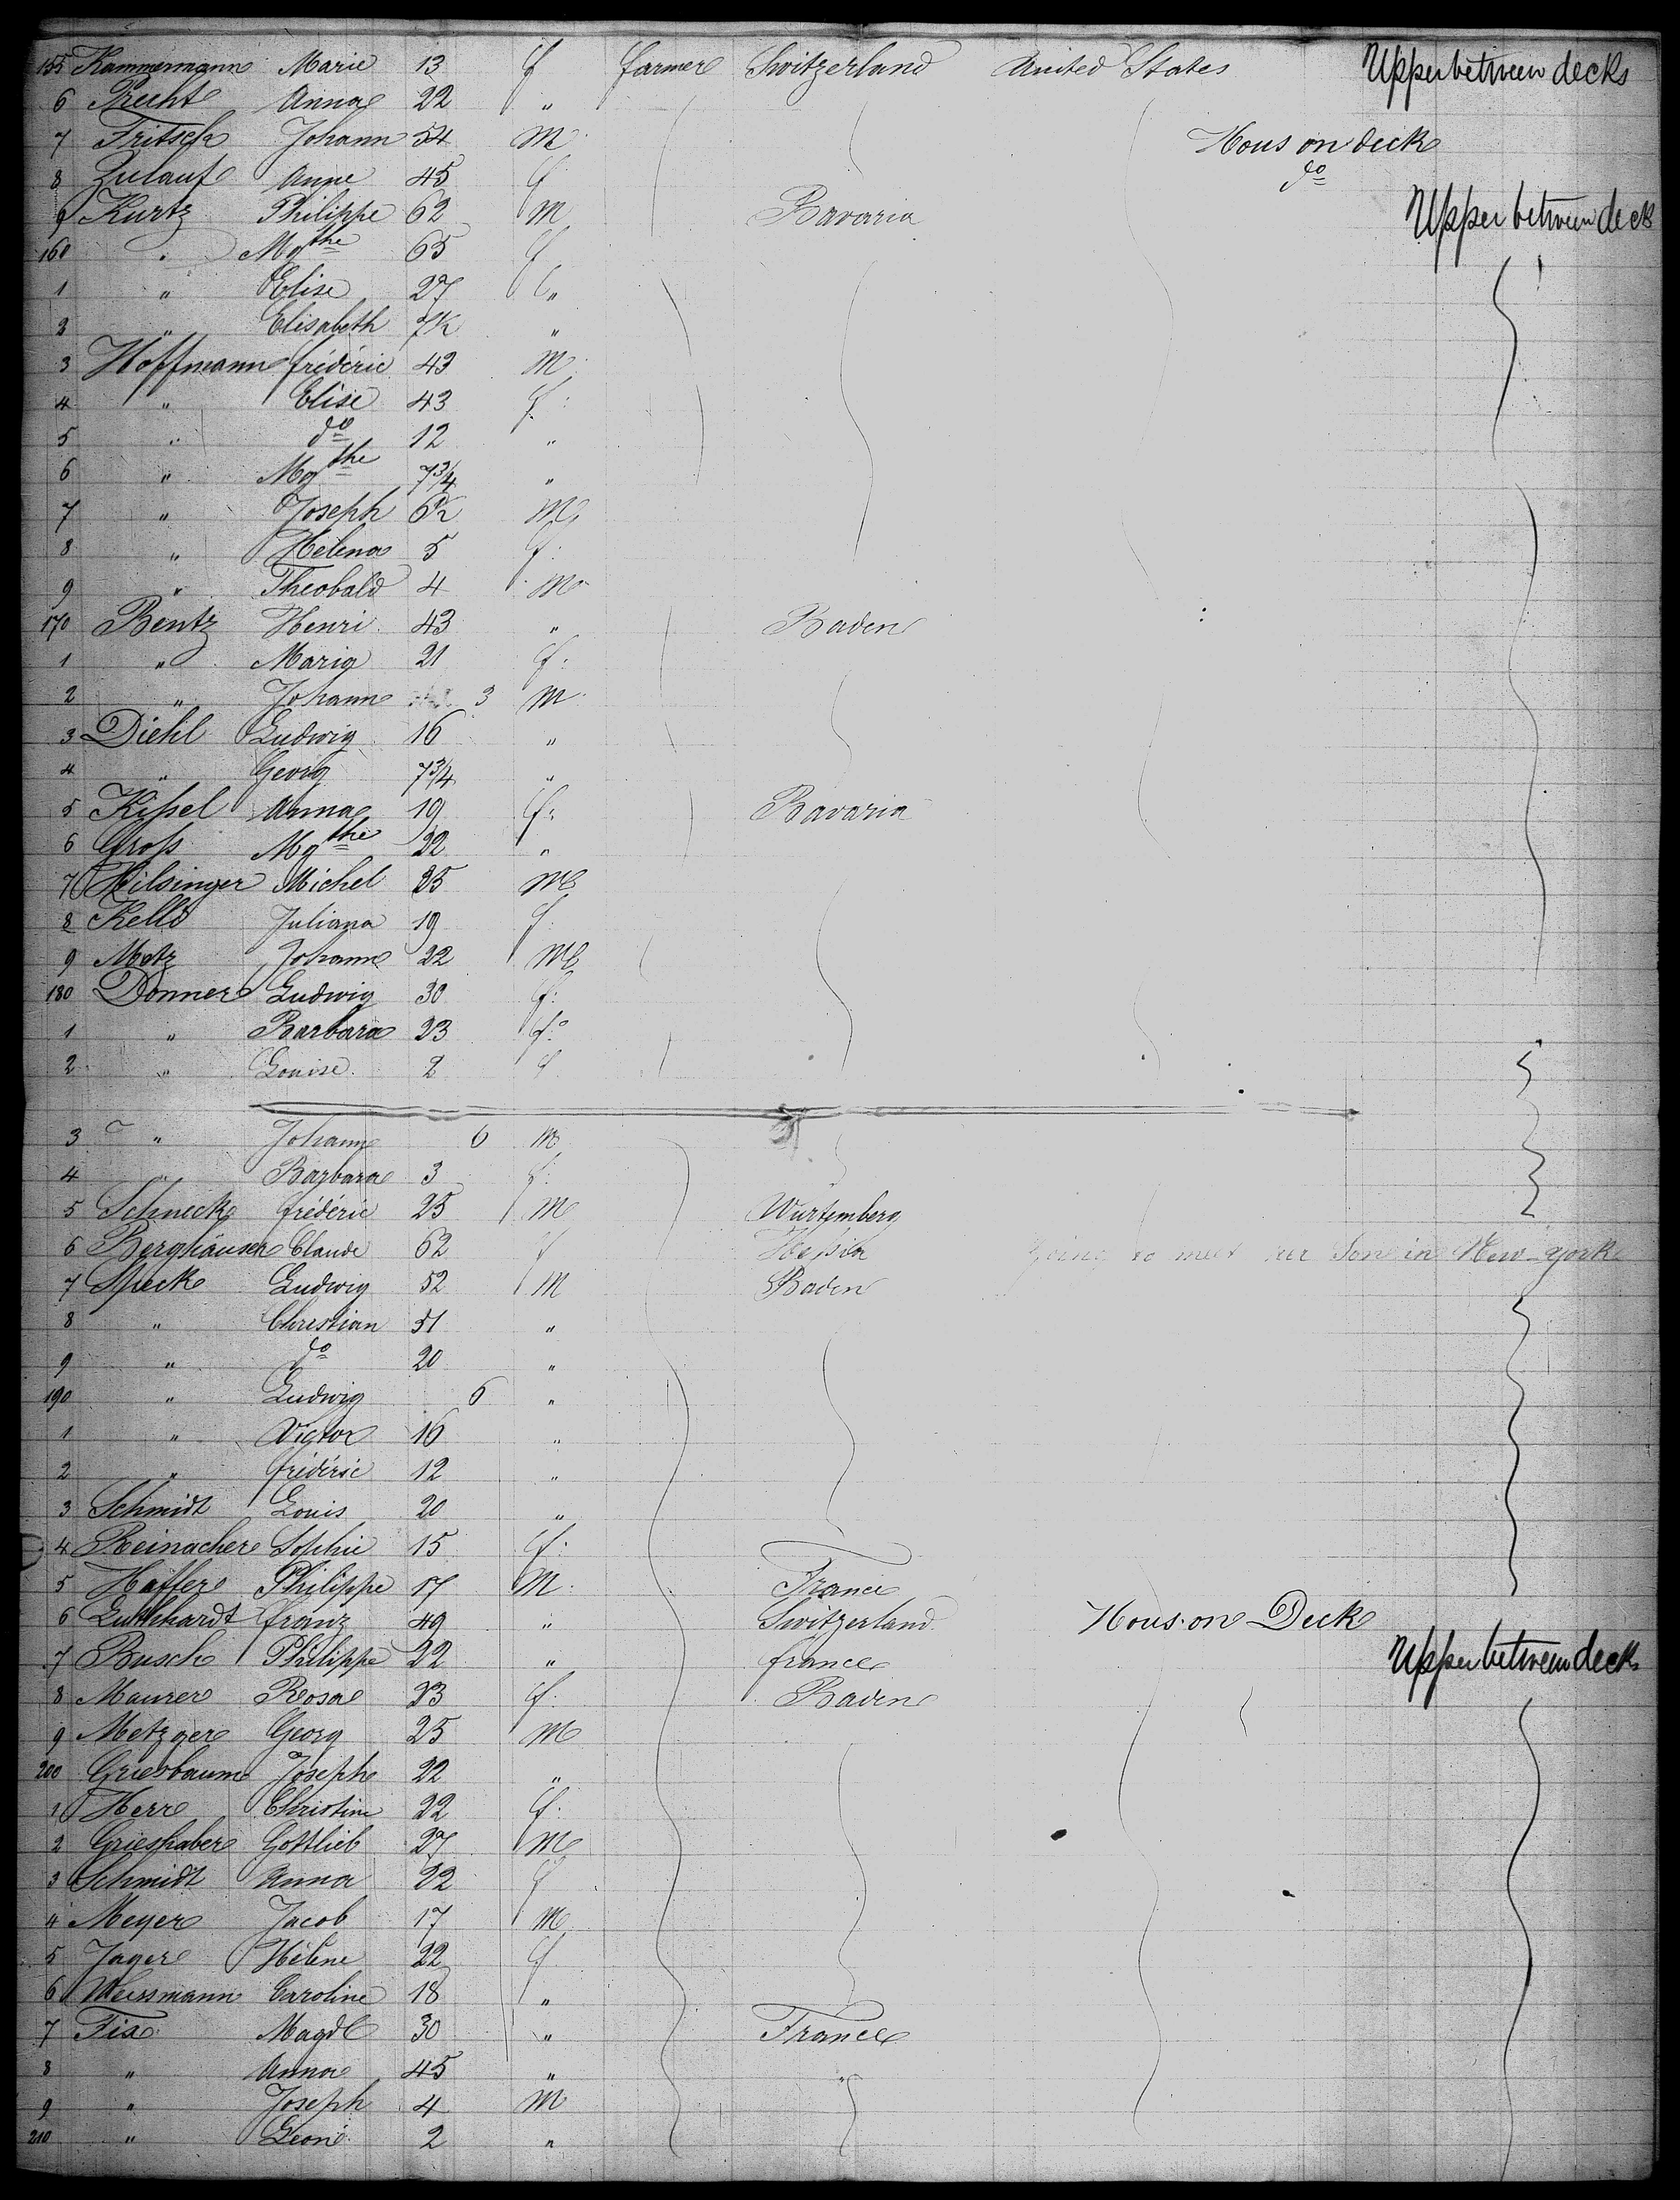 155 Kammermann Marie 13 f farmer Switzerland United States Upper between decks
6 Precht Anna 22 "
7 Fritsch Johann 54 M Hous on deck
8 Zulauf Anne 45 f do
9 Kurtz Philippe 62 M Bavaria Upper between deck
160 " Mgthe 65 f
1 " Elise 27 "
2 " Elisabeth 7½ "
3 Hoffmann frédéric 43 M
4 " Elise 43 f
5 " do 12 "
6 " Mgthe 7¾ "
7 " Joseph 6½ M
8 " Helena 5 f
9 " Theobald 4 M
170 Bentz Henri 43 " Baden
1 " Maria 21 f
2 " Johann 3 M
3 Diehl Ludwig 16 "
4 " Georg 7¾ "
5 Kissel Anna 19 f Bavaria
6 Gross Mgthe 22 "
7 Hilsinger Michel 25 M
8 Juliana 19 f
9 Metz Johann 22 M
180 Donner Ludwig 30 f
1 " Barbara 23 f
2 " Louise 2 f
3 " Johann 6 M
4 " Barbara 3 f
5 Schneck frédéric 25 M Wurtemberg
6 Berghäuser Claude 62 f Hessia going to meet her Son in New-York
7 Speck Ludwig 52 M Baden
8 " Christian 51 "
9 " do 20 "
190 " Ludwig 6 "
1 " Victor 16 "
2 " frédéric 12 "
3 Schmidt Louis 20 "
4 Reinacher Sophie 15 f
5 Haffer Philippe 17 M France
6 Luthhardt franz 49 " Switzerland Hous on Deck
7 Busch Philippe 22 " france Upper between deck
8 Maurer Rosa 23 f Baden
9 Metzger Georg 25 M
200 Griesbaum Joseph 22 "
1 Herr Christine 22 f
2 Grieshaber Gottlieb 27 M
3 Schmidt Anna 22 f
4 Meyer Jacob 17 M
5 Jager Hélène 22 f
6 Weissmann Caroline 18 "
7 Fix Magdl 30 " France
8 " Anna 45 " "
9 " Joseph 4 M
210 " Léon 2 "